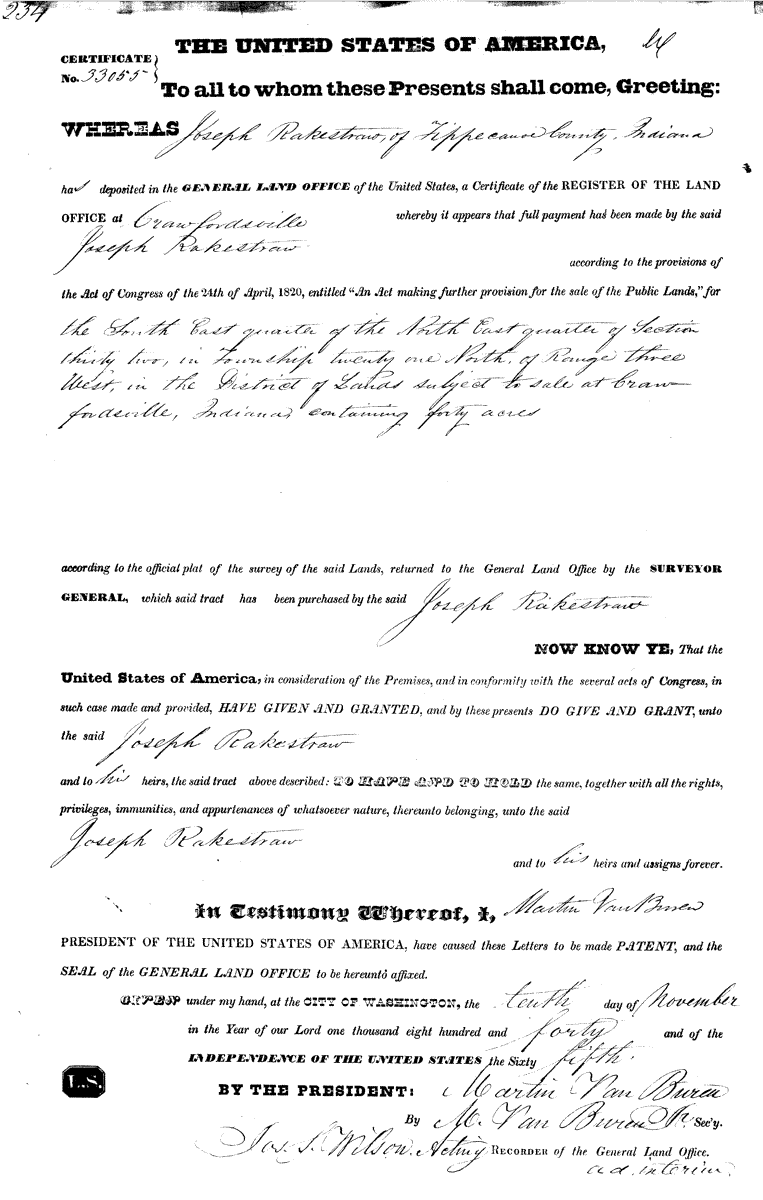 234
THE UNITED STATES OF AMERICA,
CERTIFICATE
No. 33055
To all to whom these Presents shall come, Greeting:
WHEREAS Joseph Rakestraw, of Tippecanoe County, Indiana
has deposited in the GENERAL LAND OFFICE of the United States, a Certificate of the REGISTER OF THE LAND
OFFICE at Crawfordsville whereby it appears that full payment has been made by the said
Joseph Rakestraw
according to the provisions of
the Act of Congress of the 24th of April, 1820, entitled "An Act making further provision for the sale of the Public Lands," for
the South East quarter of the North East quarter of Section
thirty two, in Township twenty one North, of Range three
West, in the District of Lands subject to sale at Craw
fordsville, Indiana, containing forty acres
according to the official plat of the survey of the said Lands, returned to the General Land Office by the SURVEYOR
GENERAL, which said tract has been purchased by the said Joseph Rakestraw
NOW KNOW YE, That the
United States of America, in consideration of the Premises, and in conformity with the several acts of Congress, in
such case made and provided, HAVE GIVEN AND GRANTED, and by these presents DO GIVE AND GRANT, unto
the said Joseph Rakestraw
and to his heirs, the said tract above described: TO HAVE AND TO HOLD the same, together with all the rights,
privileges, immunities, and appurtenances of whatsoever nature, thereunto belonging, unto the said
Joseph Rakestraw
and to his heirs and assigns forever.
In Testimony Whereof, I, Martin Van Buren
PRESIDENT OF THE UNITED STATES OF AMERICA, have caused these Letters to be made PATENT, and the
SEAL of the GENERAL LAND OFFICE to be hereunto affixed.
GIVEN under my hand, at the CITY OF WASHINGTON, the tenth day of November
in the Year of our Lord one thousand eight hundred and forty and of the
INDEPENDENCE OF THE UNITED STATES the Sixty fifth.
L.S.
BY THE PRESIDENT: Martin Van Buren
By M. Van Buren Jr. Sec'y.
Jos. S. Wilson, Acting RECORDER of the General Land Office.
ad interim.